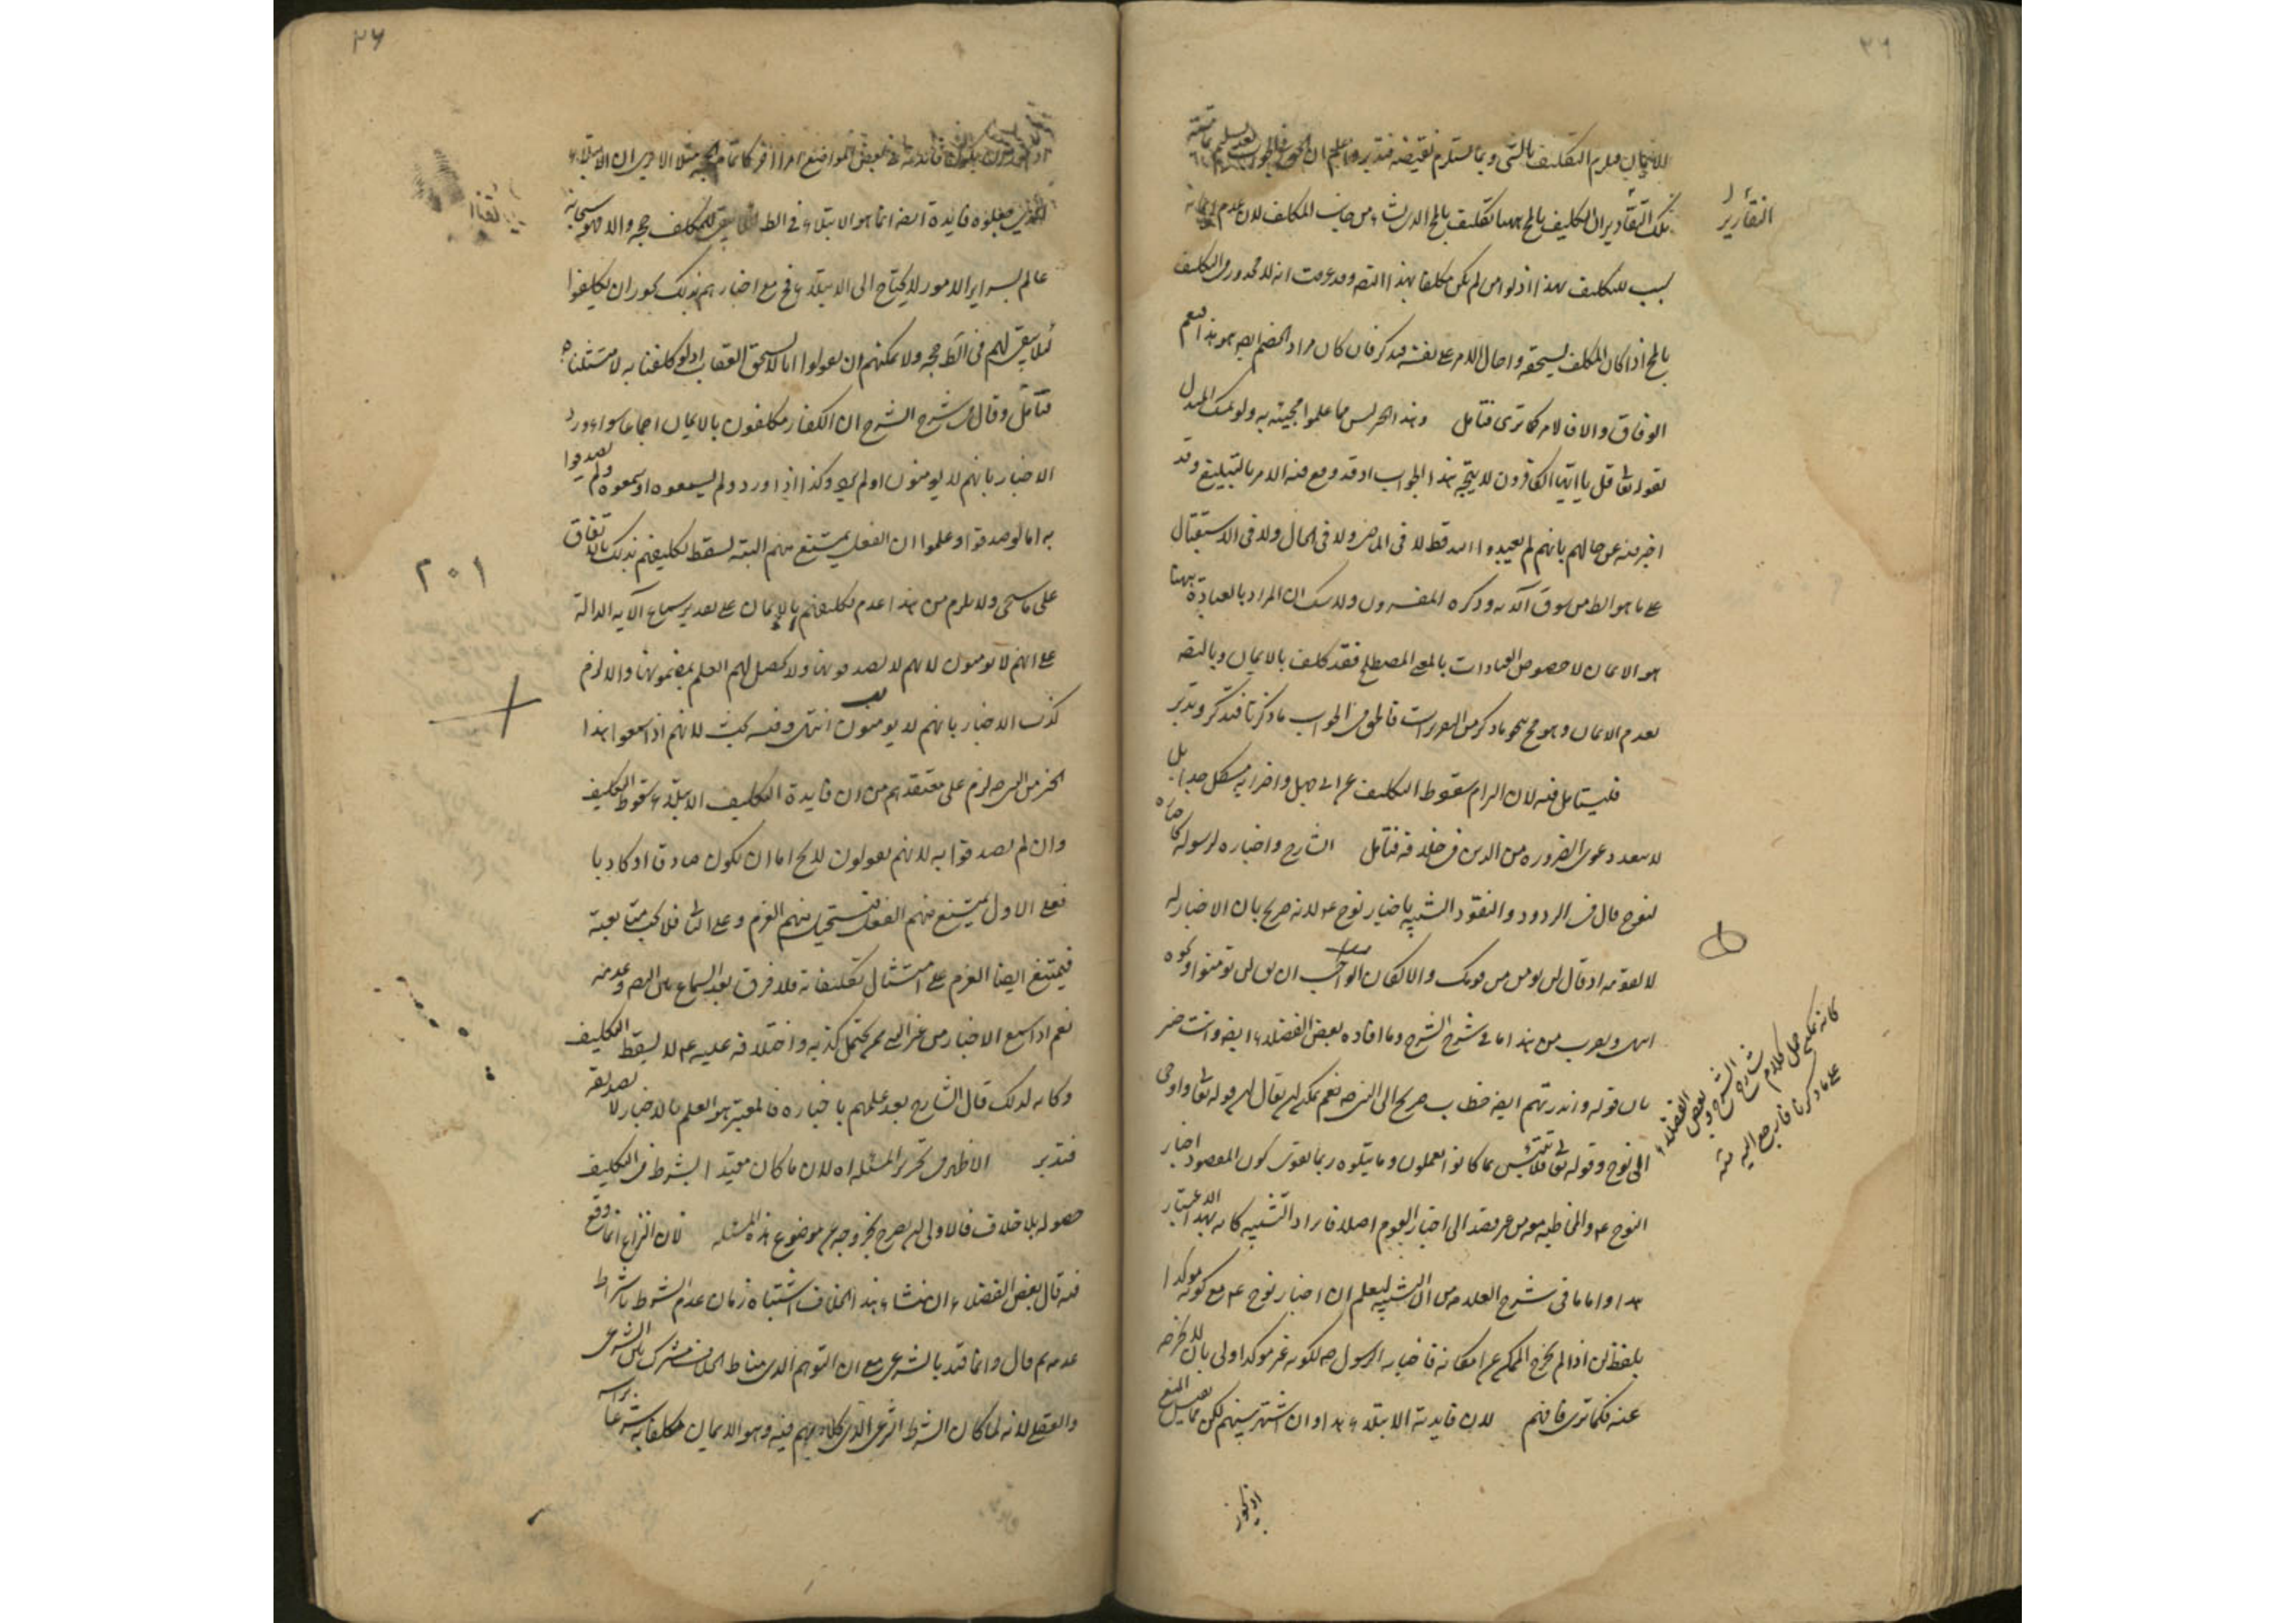 ٢٦
للايمان فيلزم التكليف بالشى وبما يستلزم نقيضه فتدبر واعلم ان
تلك التقادير ان التكليف بالمح ههنا تكليف بالمح الذى نشاء من جانب المكلف لان عدم
التقارير
سبب للتكليف بهذا اذ لو امن لم يكن مكلفا بهذا التصـ وقد عرفت انه لا محذور فى التكليف
بالمح اذا كان المكلف يستحقه واحال الامر على نفسه فتذكر فان كان مراد الخصم ايضـ هو هذا فنعم
الوفاق والا فلا تم كما ترى فتامل وهذا الخبر ليس مما علموا مجيئه به ولو تمسك المبدل
بقوله تعا قل يا ايها الكافرون لا يتجه هذا الجواب اذ قد وقع فيه الامر بالتبليغ وقد
اخبر فيه عن حالهم بانهم لم يعبدوا الله قط لا فى الماضى ولا فى الحال ولا فى الاستقبال
على ما هو الظ من سوق الآية وذكره المفسرون ولا شك ان المراد بالعبادة ههنا
هو الايمان لا خصوص العبادات بالمعنى المصطلح فقد كلف بالايمان وبالتصـ
بعدم الايمان وهو مح بنحو ما ذكر من التقريرات فالحق فى الجواب ما ذكرنا فتذكر وتدبر
فليتامل فيه لان الزام سقوط التكليف عن ابى جهل واضرابه مشكل جدا بل
لا يبعد دعوى الضرورة من الدين فى خلافه فتامل الشارح واخباره لرسوله كاخباره
لنوح قال فى الردود والنقود الشبيه باخبار نوح عم لانه صريح بان الاخبار له
لا لقومه اذ قال لن يومن من قومك والا لكان الواجب ان يق لن تومنوا ونحوه
انتهى ويقرب من هذا ما فى شرح الشرح وما افاده بعض الفضلاء ايضـ وانت خبير
بان قوله وانذرتهم ايضـ خطاب صريح الى النبى صـ نعم يمكن ان يقال ان قوله تعا واوحى
الى نوح وقوله تعا فلا تبتئس بما كانوا يعملون وما يتلوه ربما يقوى كون المقصود اخبار
النوح عم والمخاطبه معه من غير قصد الى اخبار القوم اصلا فايراد التشبيه كانه لهذا الاعتبار
هذا واما ما فى شرح العلامه من ان التشبيه ليعلم ان اخبار نوح عم مع كونه موكدا
بلفظ لن اذا لم يخرج الممكن عن امكانه فاخبار الرسول صـ لكونه غير موكد اولى بان لا يخرجه
عنه فكما ترى فافهم لان فايدته الابتلاء هذا وان اشتهر بينهم لكن
كانه يمكن حمل كلام شارح الشرح وبعض الفضلاء
على ما ذكرنا فارجع اليه منه
اذ يجوز
٢٧
اذ يجوز ان يكون فائدته فى بعض المواضع امرا اخر كاتمام الحجه مثلا الا ترى ان الابتلاء
الذين جعلوه فايدة ايضـ انما هو الابتلاء فى الظ لئلا يبقى للمكلف حجه والا فهو سبحانه
عالم بسراير الامور لا يحتاج الى الابتلاء فح مع اخبارهم بذلك يجوز ان يكلفوا
لئلا يبقى لهم فى الظ حجه ولا يمكنهم ان يقولوا انا لا نستحق العقاب اذ لو كلفنا به لامتثلناه
فتامل وقال فى شرح الشرح ان الكفار مكلفون بالايمان اجماعا سواء ورد
الاخبار بانهم لا يومنون او لم يرد وكذا اذا ورد ولم يسمعوه او سمعوه ولم يصدقوا
به اما لو صدقوا وعلموا ان الفعل يمتنع منهم البته لسقط تكليفهم بذلك بالاتفاق
على ما سيجى ولا يلزم من هذا عدم تكليفهم بالايمان على تقدير سماع الآيه الدالة
٢٠١
على انهم لا يومنون لانهم لا يصدقونها ولا يحصل لهم العلم بمضمونها والا لزم
كذب الاخبار بانهم لا يومنون انتهى وفيه بحث لانهم اذا سمعوا هذا
الخبر من النبى صـ لزم على معتقدهم من ان فايدة التكليف الابتلاء سقوط التكليف
وان لم يصدقوا به لانهم يقولون لا يخ اما ان يكون صادقا او كاذبا
فعلى الاول يمتنع منهم الفعل فيستحيل منهم العزم وعلى الثانى فلا يجب متابعته
فيمتنع ايضا العزم على امتثال تكليفاته فلا فرق بعد السماع بين التصـ وعدمه
نعم اذا سمع الاخبار من غير النبى ممن يحتمل كذبه واختلافه عليه عم لا يسقط التكليف
وكانه لذلك قال الشارح بعد علمهم باخباره فالمعتبر هو العلم بالاخبار لا تصديقه
فتدبر الاظهر فى تحرير المسئله اه لان ما كان مقيدا بشرط فى التكليف
حصوله بلا خلاف فالاولى ان يصرح بخروجه عن موضوع هذه المسئله فان النزاع انما وقع
فيه قال بعض الفضلاء ان منشاء هذا الخلاف اشتباه زمان عدم الشرط بشرط
عدمه ثم قال وانما قيد بالشرعى مع ان التوهم الذى مناط الخلاف مشترك بين الشرعى
والعقلى لانه لما كان الشرط الشرعى الذى كلامهم فيه وهو الايمان مكلفا به شرعا